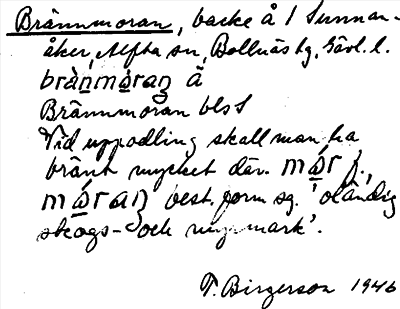 Brännmoran, backe å 1 Sunnan-
åker, Alfta sn, Bollnäs tg, Gävl. l.
brànmòran å
Brännmoran bls S
Vid uppodling skall man ha
bränt mycket där. mår f.,
måran best. form sg. 'oländig
skogs- och myrmark'.
T. Birgerson 1946